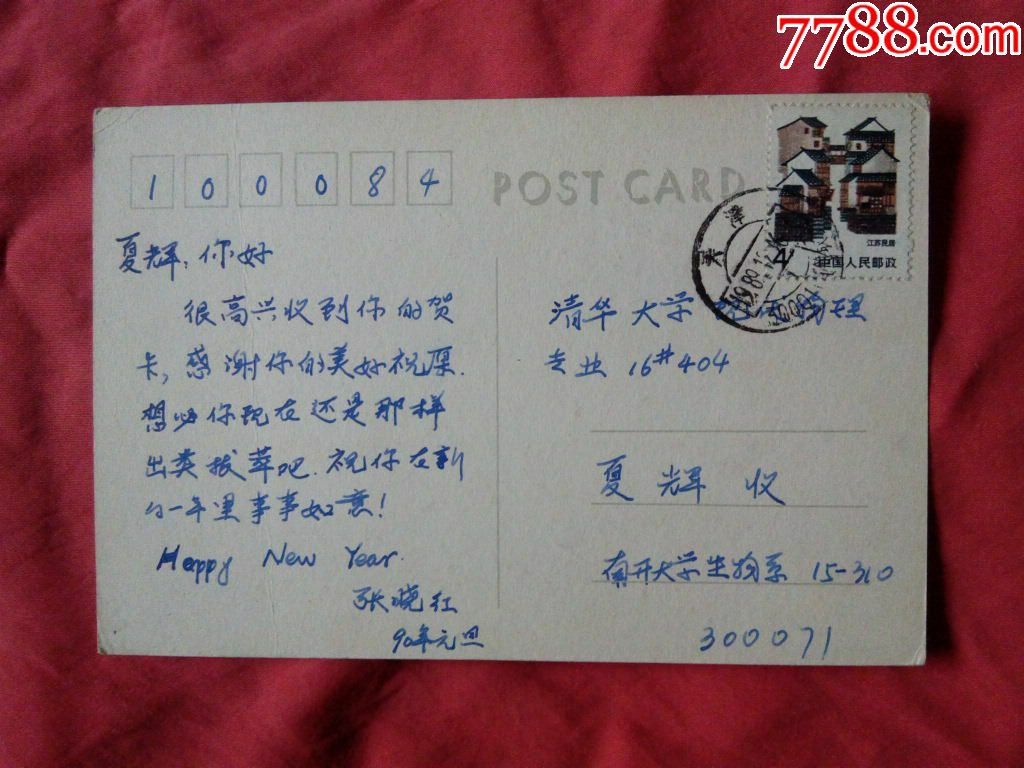 7788.com
100084
POST CARD
江苏民居
4
中国人民邮政
天津
夏辉:你好
很高兴收到你的贺
卡,感谢你的美好祝愿.
想必你现在还是那样
出类拔萃吧.祝你在新
的一年里事事如意!
Happy New Year.
张晓红
90年元旦
清华大学 物理
专业 16#404
夏辉 收
南开大学生物系 15-310
300071